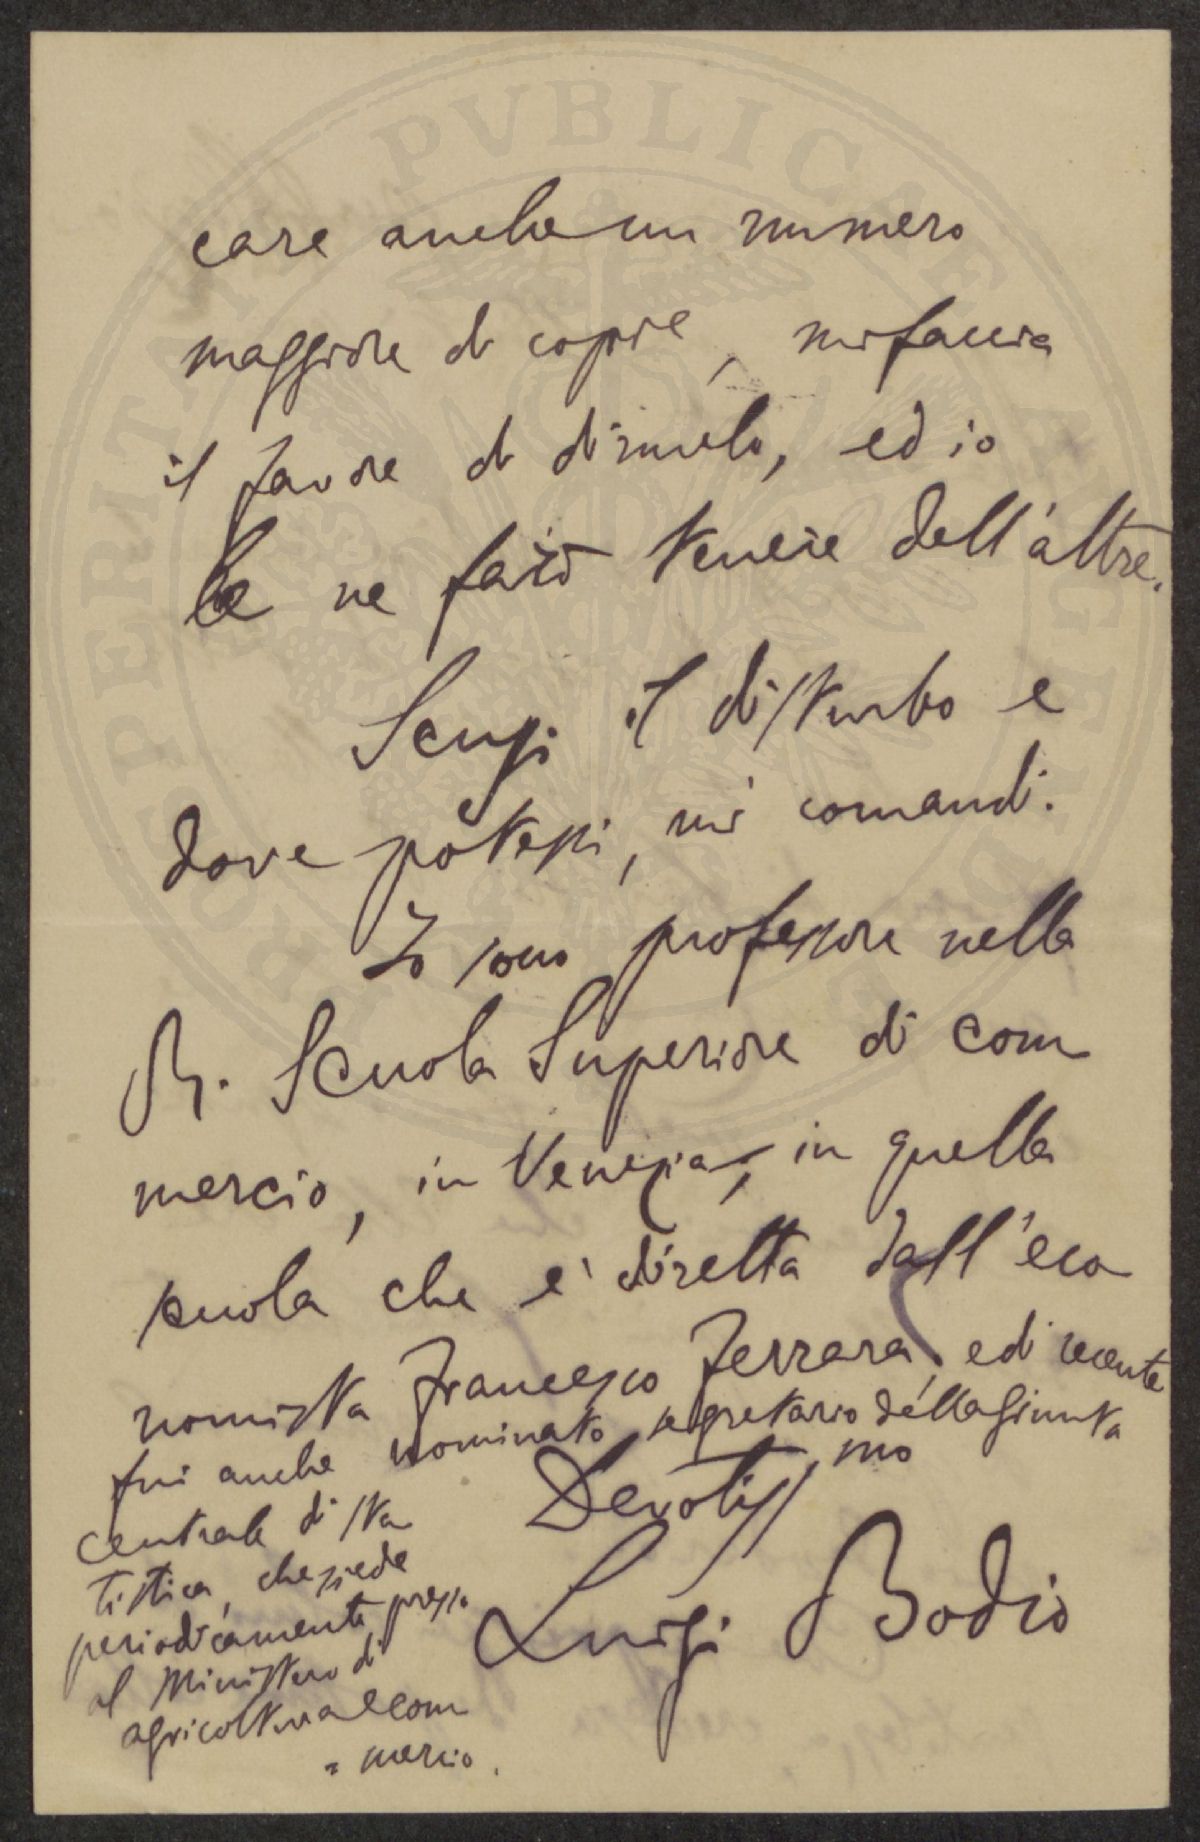 care anche un numero
maggiore di copie, mi faccia
il favore di dirmelo, ed io
le ne farò tenere dell'altre.
Scusi il disturbo e
dove potessi, mi comandi.
Io sono professore nella
R. Scuola Superiore di com
mercio, in Venezia, in quella
scuola che è diretta dall'eco
nomista Francesco Ferrara, e di recente
fui anche nominato segretario della Giunta
centrale di sta
tistica, che siede
periodicamente presso
al Ministero di
agricoltura e com
= mercio.
Devotiss.mo
Luigi Bodio
PROSPERITATI PVBLICAE AVGENDAE